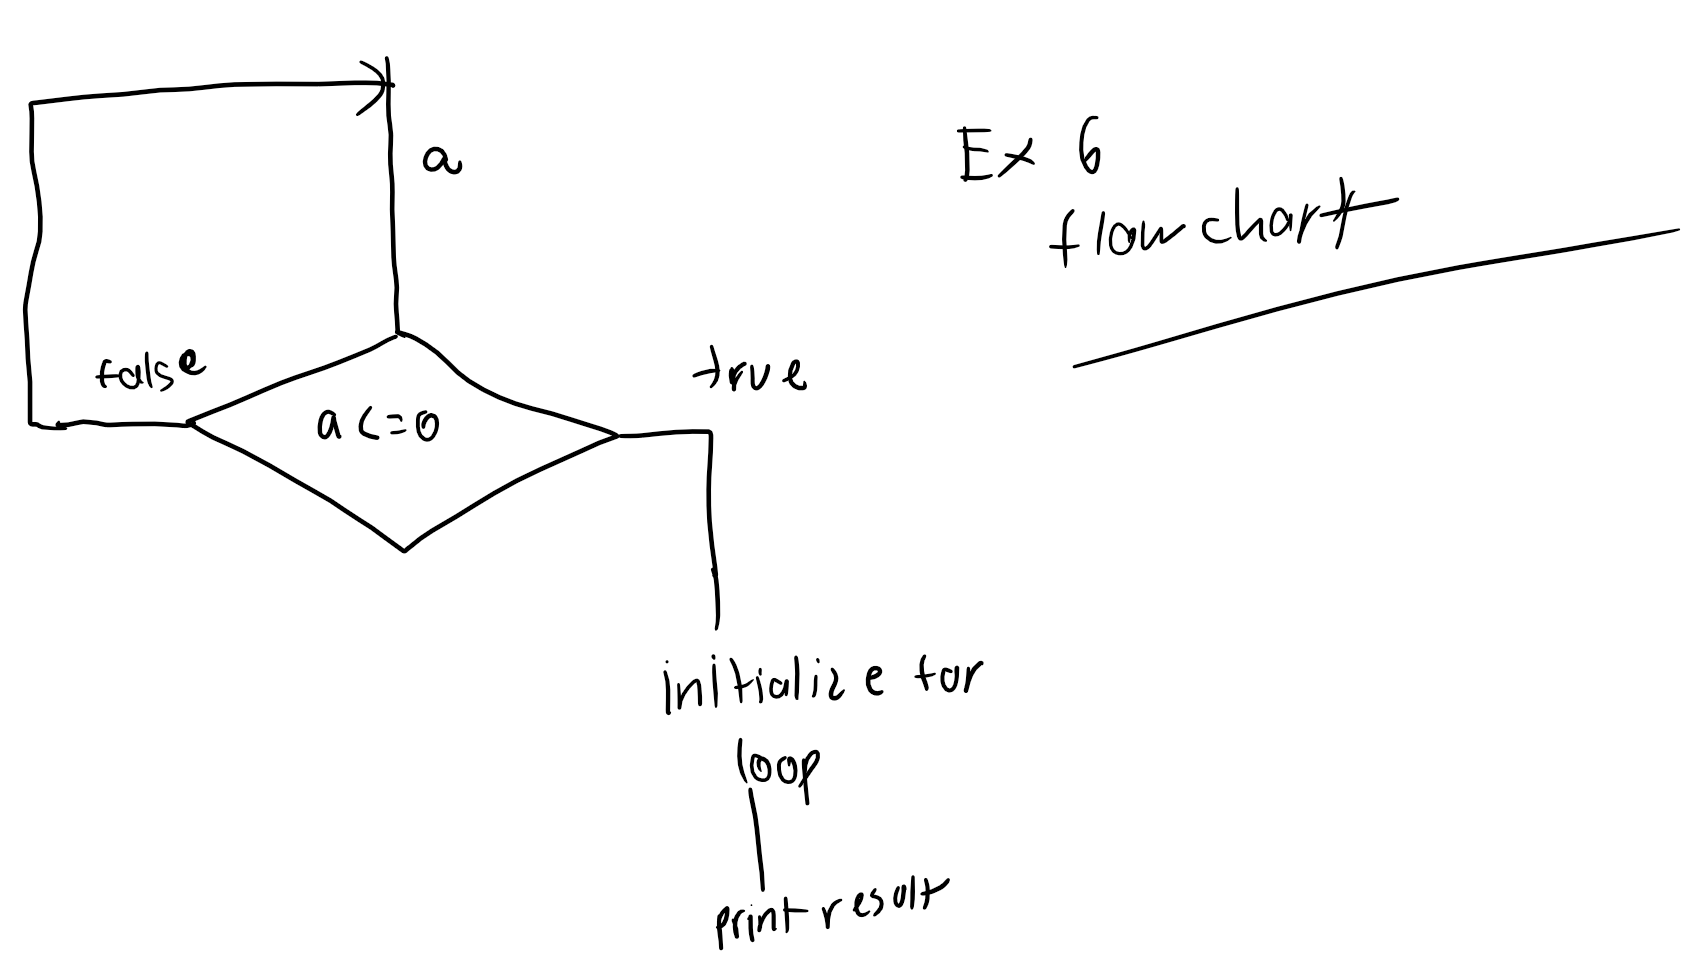 Ex 6
flowchart
a
false
true
a <= 0
initialize for
loop
print result